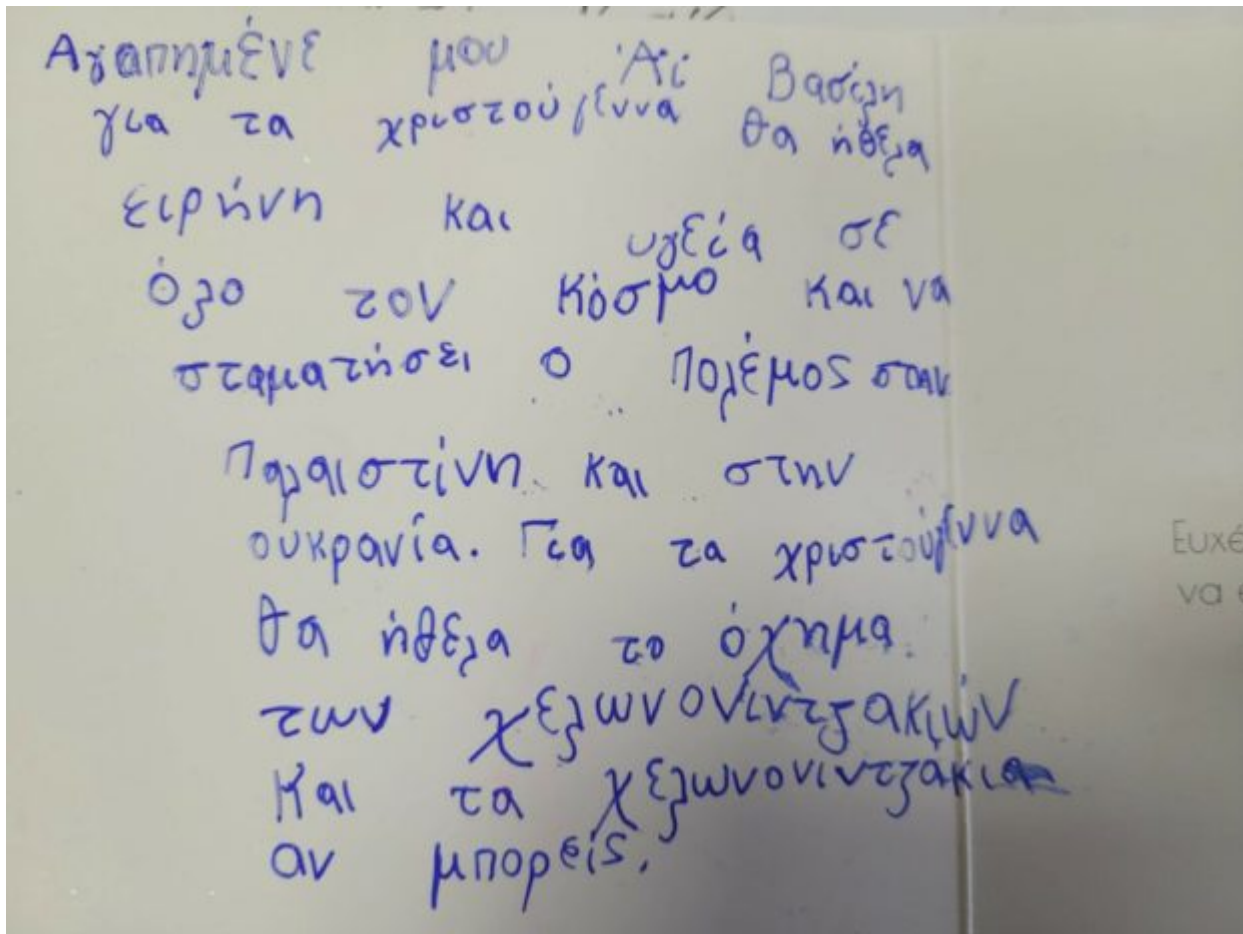 Αγαπημένε μου Άϊ Βασίλη
για τα χριστούγεννα θα ήθελα
ειρήνη και υγεία σε
όλο τον κόσμο και να
σταματήσει ο πολέμος στην
Παλαιστίνη και στην
ουκρανία. Για τα χριστούγεννα
θα ήθελα το όχημα
των χελωνονιντζακιών
και τα χελωνονιντζάκια
αν μπορείς.
Ευχέ
να